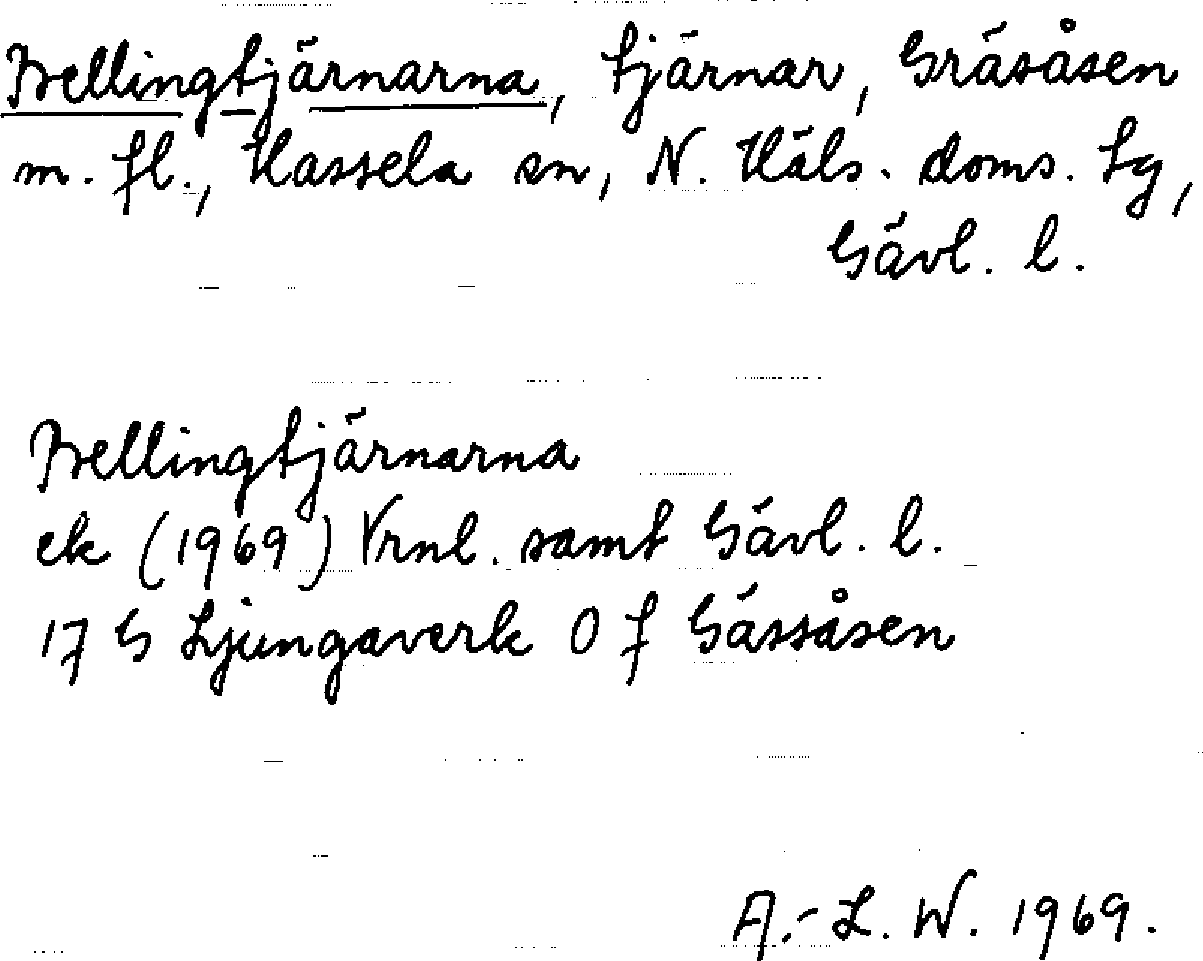 Bellingtjärnarna, tjärnar, Gräsåsen
m. fl., Hassela sn, N. Häls. doms. tg,
Gävl. l.
Bellingtjärnarna
ek (1969) Vrnl. samt Gävl. l.
17 G Ljungaverk 0 f Gässåsen
A.-L. W. 1969.